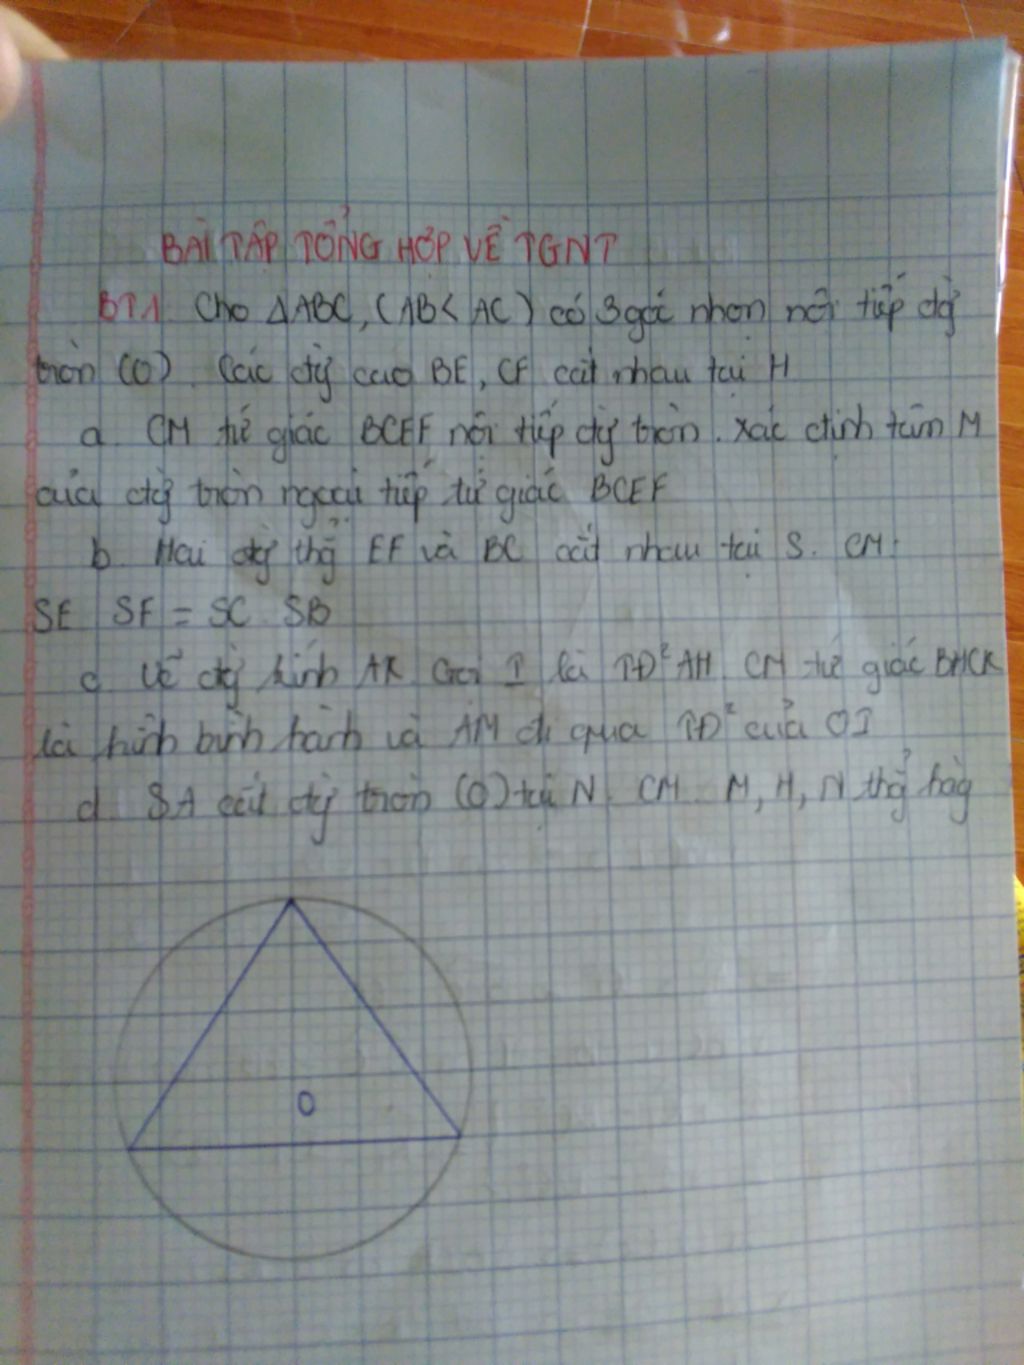 BÀI TẬP TỔNG HỢP VỀ TGNT
BT1. Cho ΔABC, (AB < AC) có 3 góc nhọn nội tiếp đg̀
tròn (O). Các đg̀ cao BE, CF cắt nhau tại H
a. CM tứ giác BCEF nội tiếp đg̀ tròn. Xác định tâm M
của đg̀ tròn ngoại tiếp tứ giác BCEF
b. Hai đg̀ thg̉ EF và BC cắt nhau tại S. CM:
SE. SF = SC. SB
c. Vẽ đg̀ kính AK. Gọi I là TĐ² AH. CM tứ giác BHCK
là hình bình hành và AM đi qua TĐ² của OI
d. SA cắt đg̀ tròn (O) tại N. CM M, H, N thg̉ hàg
O